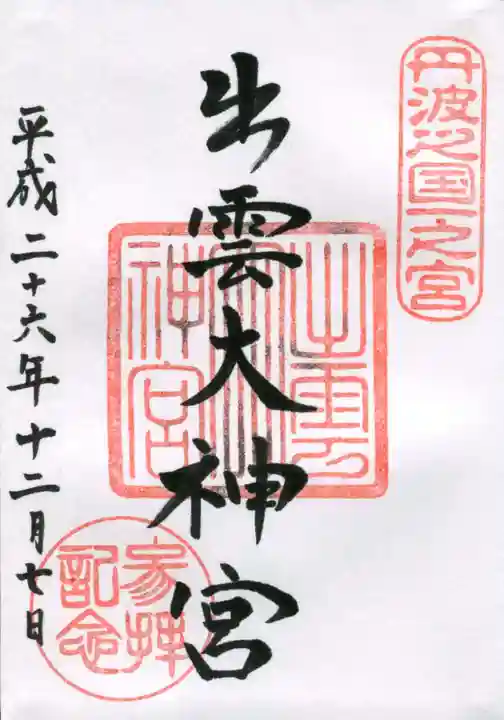 丹波之国一之宮
出雲大神宮
出雲大神宮
平成二十六年十二月七日
参拝記念